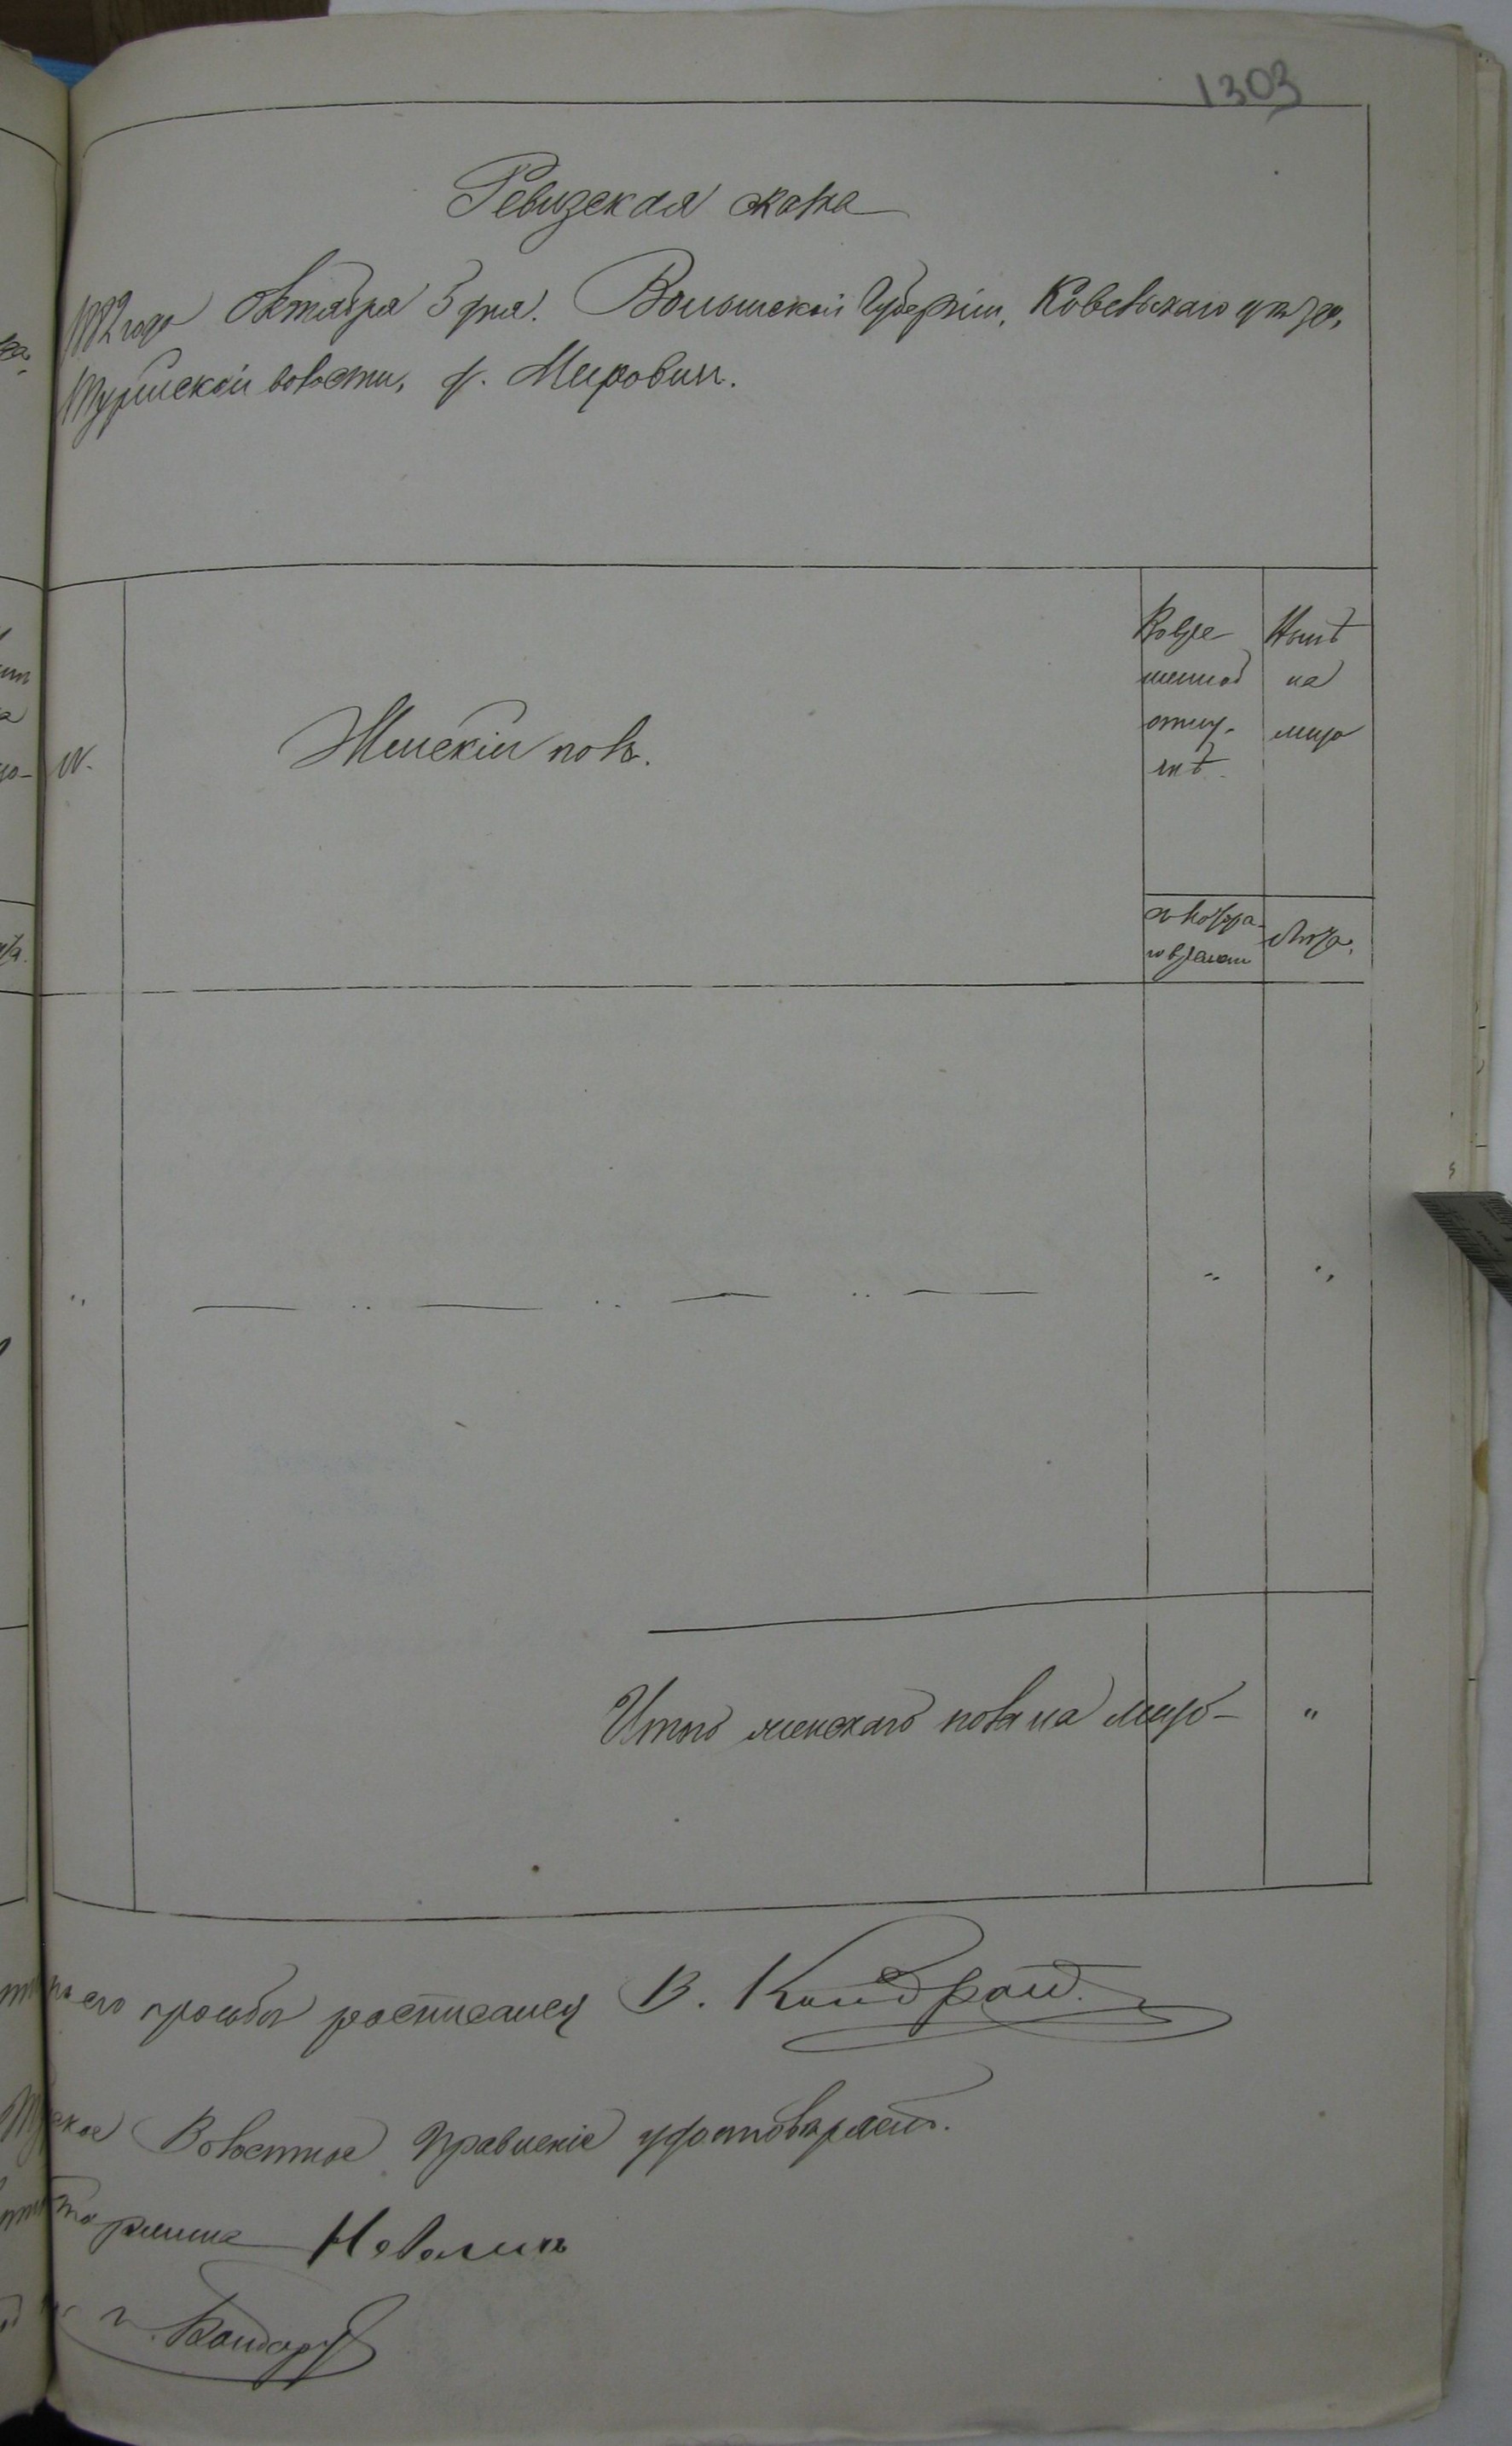 1303
Ревизская сказка
1882 года Октября 5 дня. Волынской Губерніи, Ковельскаго уѣзда,
Турійской волости, д. Мировичи.
№.
Женскій полъ.
Во вре-
менной
отлуч-
кѣ.
Нынѣ
на
лицо
Съ котора-
го времени
Лѣта.
Итого женскаго пола на лицо — "
его просьбѣ росписался В. Кондрат
Волостное Правленіе удостовѣряетъ.
Старшина
Бондар